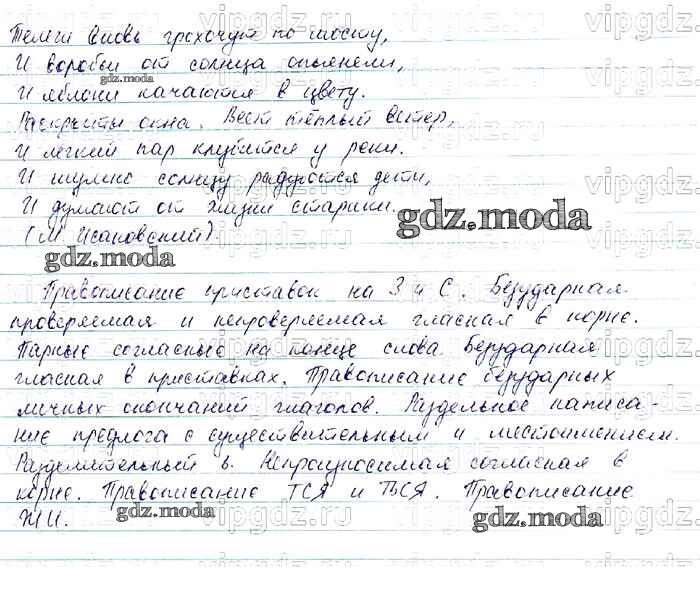 Телеги вновь грохочут по мосту,
И воробьи от солнца опьянели,
И яблони качаются в цвету.
Раскрыты окна. Веет тёплый ветер,
И лёгкий пар клубится у реки.
И шумно солнцу радуются дети,
И думают от жизни старики.
(М Исаковский)
Правописание приставок на З и С. Безударная
проверяемая и непроверяемая гласная в корне.
Парные согласные на конце слова. Безударная
гласная в приставках. Правописание безударных
личных окончаний глаголов. Раздельное написа-
ние предлога с существительным и местоимением.
Разделительный ь. Непроизносимая согласная в
корне. Правописание ТСЯ и ТЬСЯ. Правописание
ЖИ.
gdz.moda
gdz.moda
gdz.moda
gdz.moda
gdz.moda
vipgdz.ru